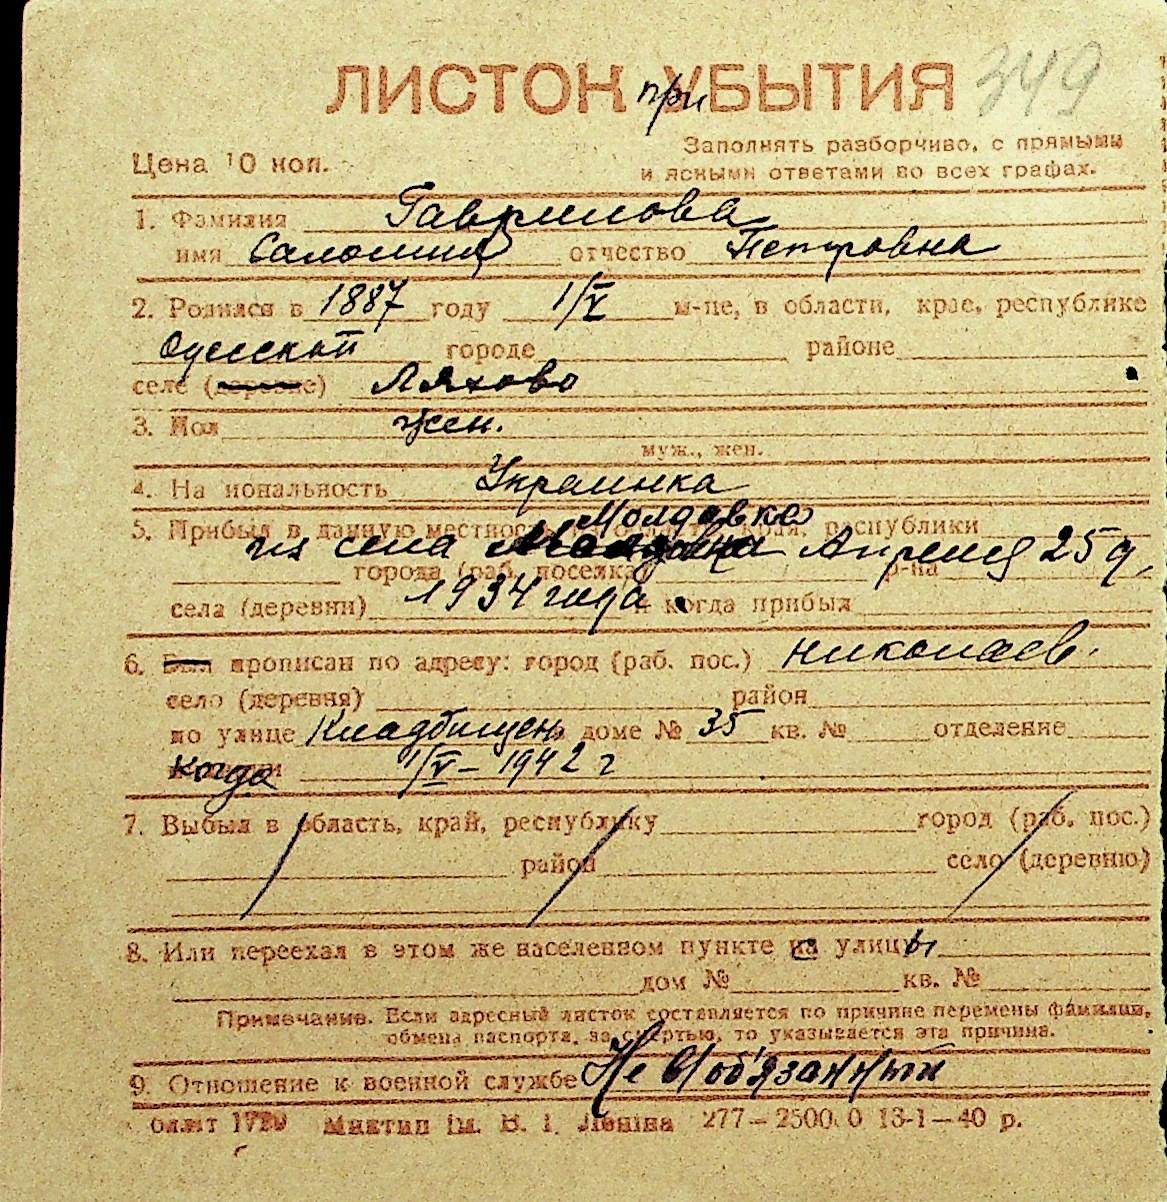 ЛИСТОК приУБЫТИЯ 349
Цена 10 коп.
Заполнять разборчиво, с прямыми
и ясными ответами во всех графах.
1. Фамилия Гаврилова
имя Саломия отчество Петровна
2. Родился в 1887 году 1/V м-це, в области, крае, республике
Одесской городе районе
селе (деревне) Ляхово
3. Пол жен.
муж., жен.
4. Национальность Украинка
Молдовка
5. Прибыл в данную местность из области, края, республики
из села Апреля 25 д,
города (раб. поселка) р-на
села (деревни) 1934 года и когда прибыл
6. Был прописан по адресу: город (раб. пос.) Николаев.
село (деревня) район
по улице Кладбищен. доме № 35 кв. № отделение
когда 1/V – 1942 г
7. Выбыл в область, край, республику город (раб. пос.)
район село (деревню)
8. Или переехал в этом же населенном пункте на улицы
дом № кв. №
Примечание. Если адресный листок составляется по причине перемены фамилии,
обмена паспорта, за смертью, то указывается эта причина.
9. Отношение к военной службе Не в/об'язанный
277–2500 0 13-1–40 р.
Миктип Ім. В. І. Леніна